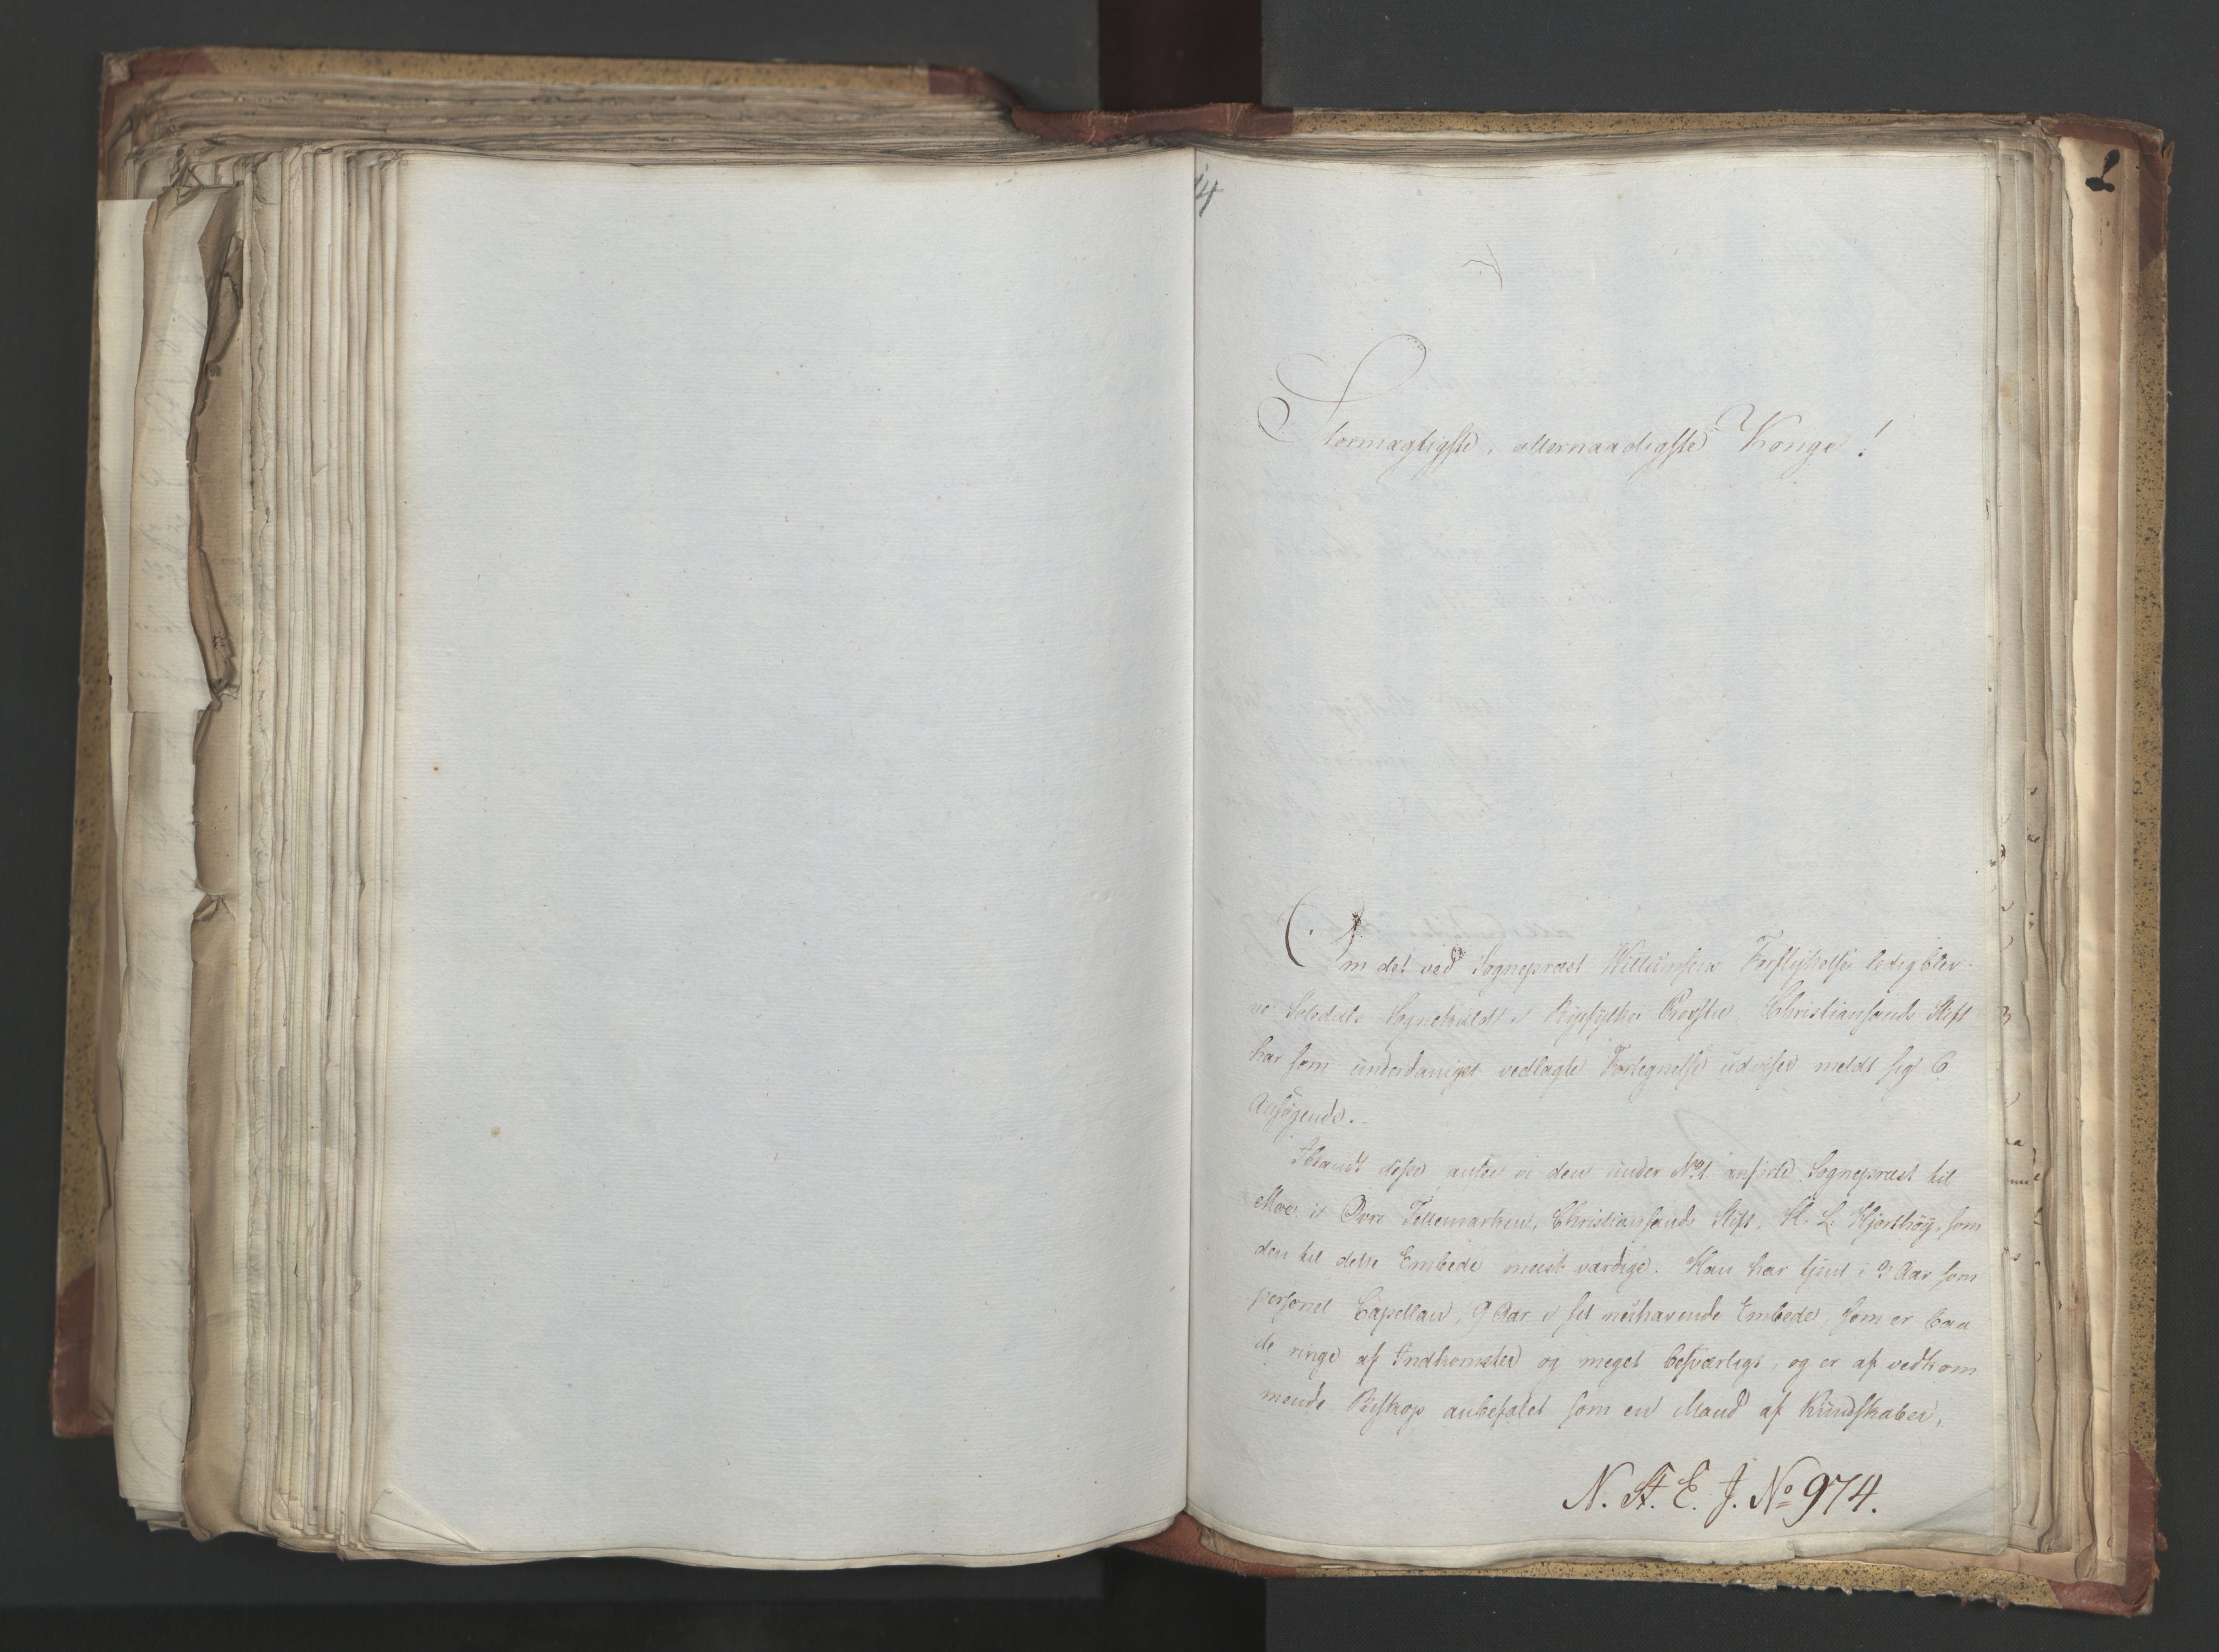 Stormægtigste, allernaadigste Konge!
Om det ved Sognepræst Willumsens Forflyttelse ledigblev-
ne Sognekald i Ryefylke Provstie, Christiansands Stift
har som underdanigst vedlagte Fortegnelse udviser meldt sig 6
Ansøgende.
Iblandt disse ansee vi den under No 1 anførte Sognepræst til
Moe i Øvre Tellemarken, Christiansands Stift, H. L. Hjorthøy, som
den til dette Embede meest værdige. Han har tjent i 9 Aar som
personel Capellan, 9 Aar i sit nuhavende Embede, som er baa
de ringe af Indkomster og meget besværligt, og er af vedkom
mende Biskop anbefalet som en Mand af Kundskaber,
N. St. E. J. No 974.